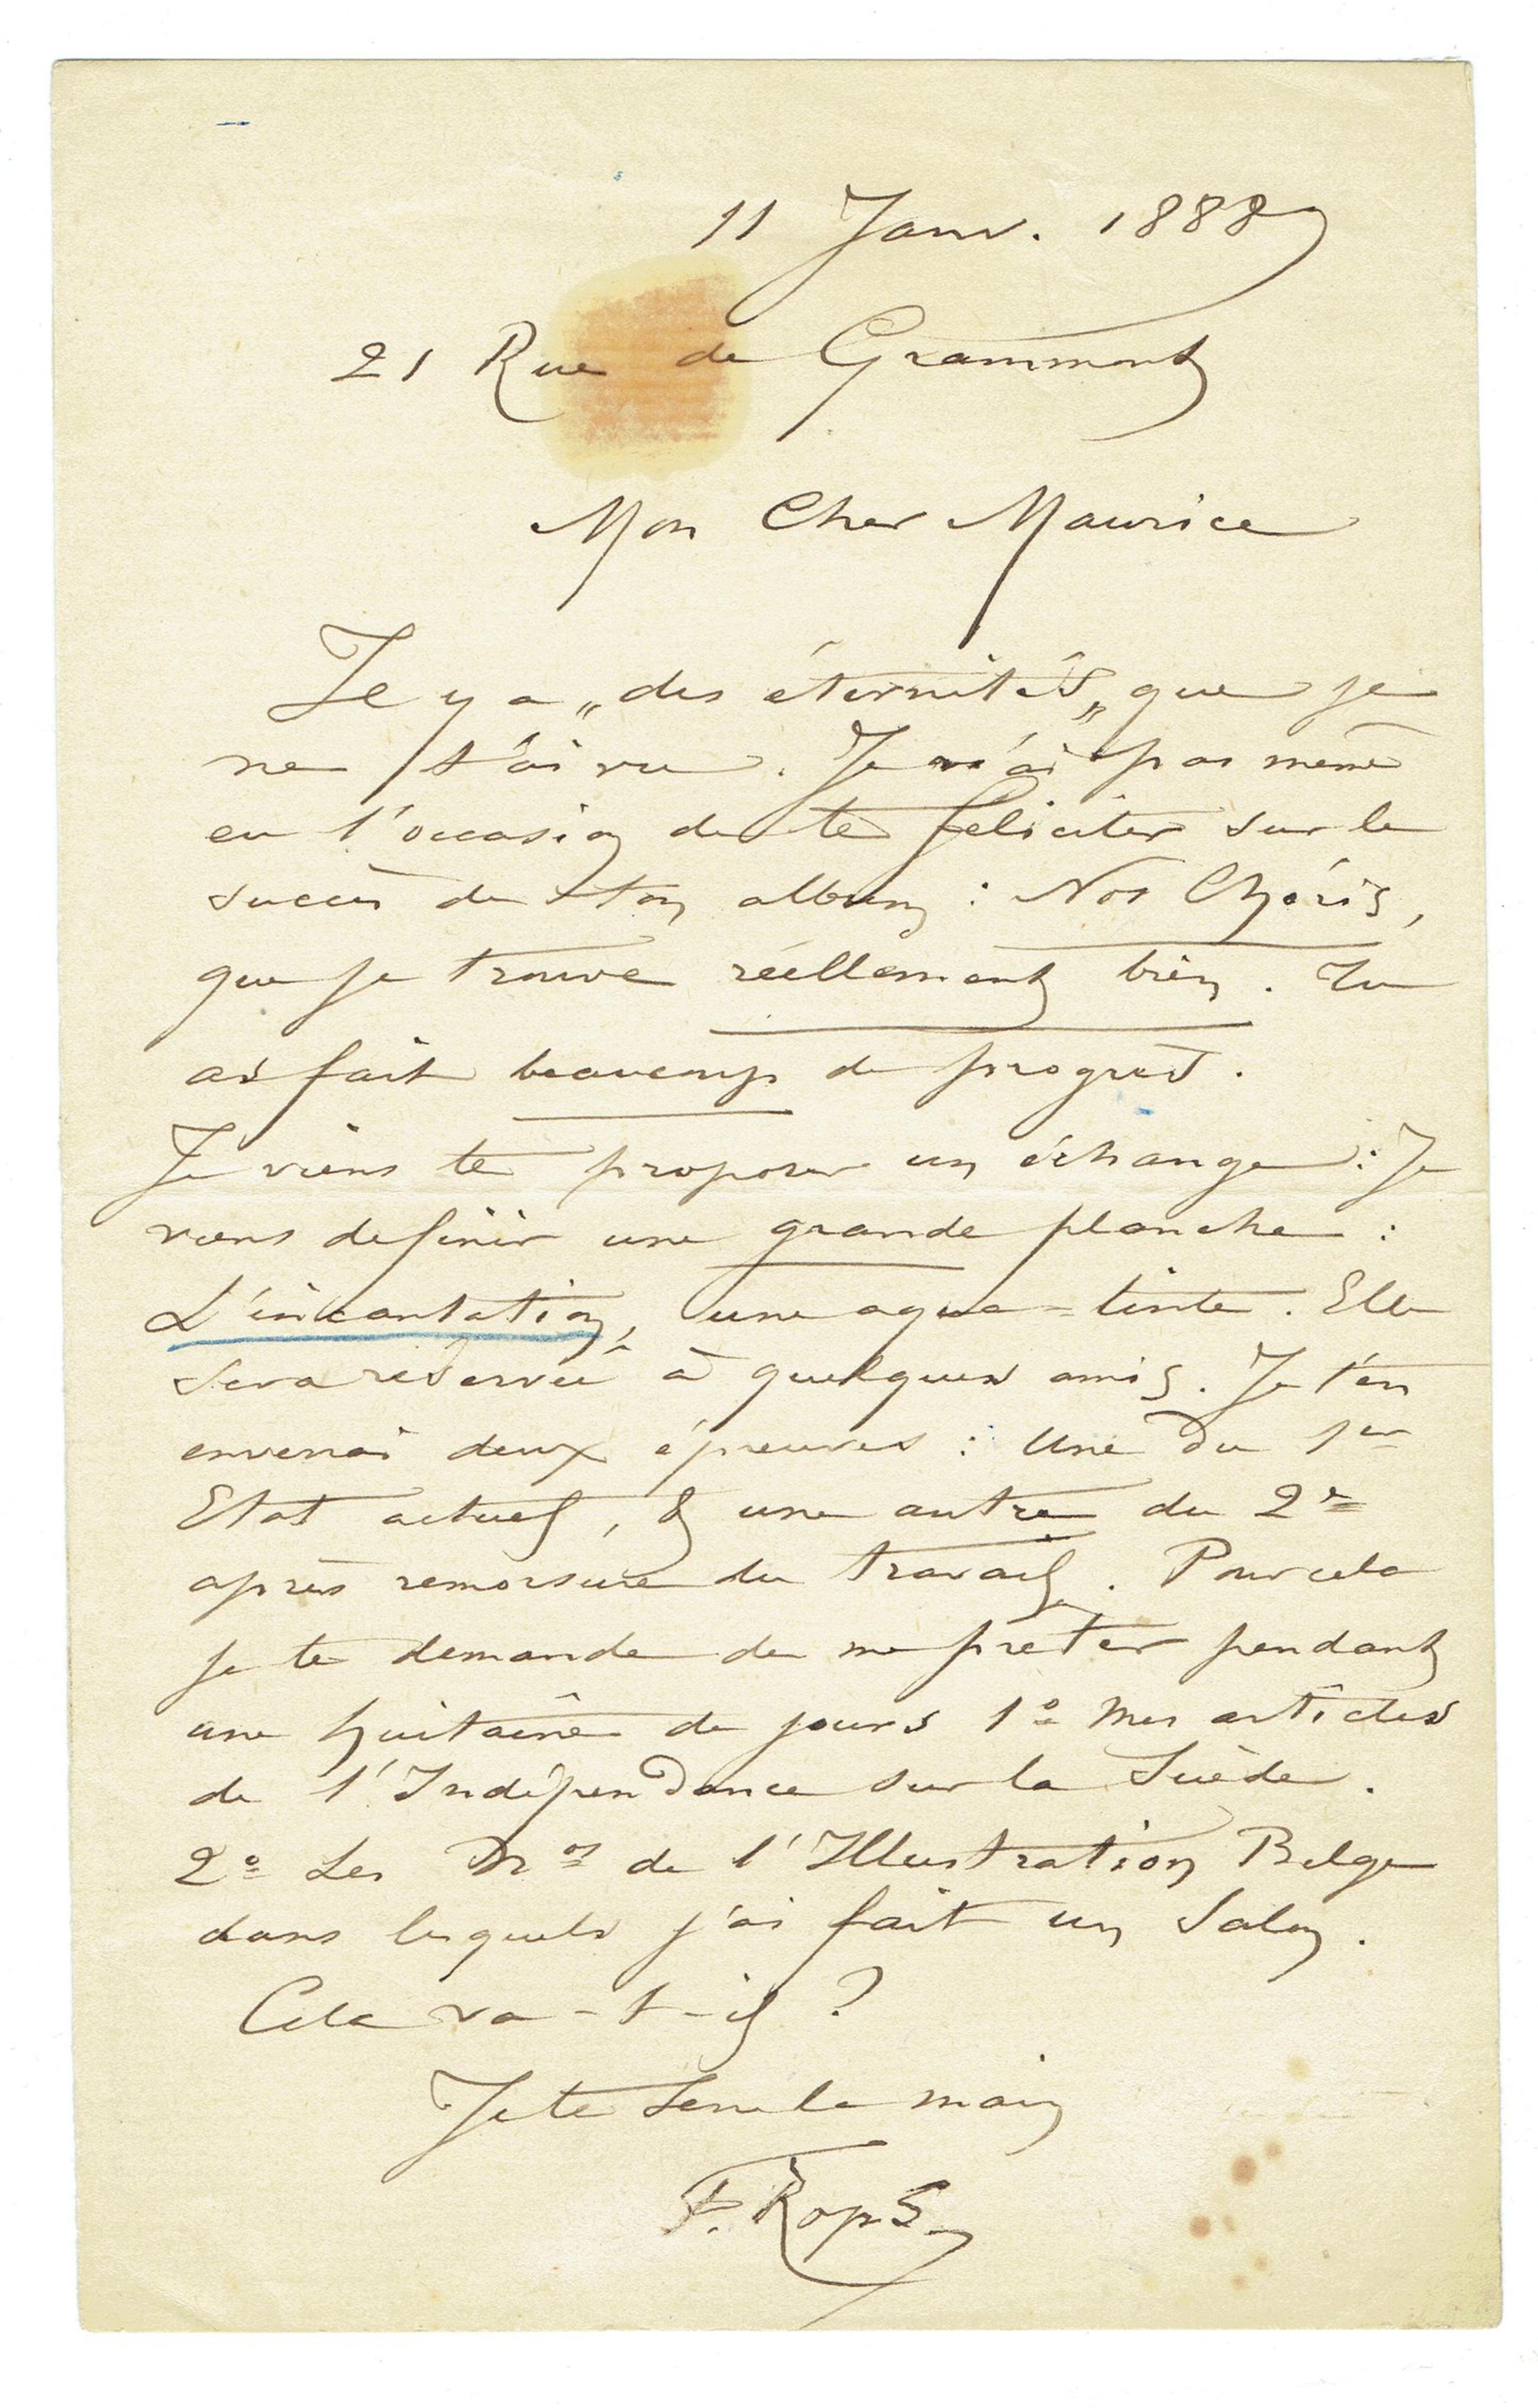 11 Janv. 1888
21 Rue de Grammont
Mon Cher Maurice
Il y a „des éternités„ que je
ne t'ai vu. Je n'ai pas même
eu l'occasion de te feliciter sur le
succès de ton album : Nos Chéris,
que je trouve réellement bien. Tu
as fait beaucoup de progrès.
Je viens te proposer un échange : Je
viens de finir une grande planche :
L'incantation, une aqua-tinte. Elle
sera réservée à quelques amis. Je t'en
enverrai deux épreuves : Une du 1er
Etat actuel, & une autre du 2e
après remorsure du travail. Pour cela
je te demande de me prêter pendant
une huitaine de jours 1o Mes articles
de l'Indépendance sur la Suède.
2o Les Nos de l'Illustration Belge
dans lesquels j'ai fait un Salon.
Cela va-t-il ?
Je te serre la main
F. Rops